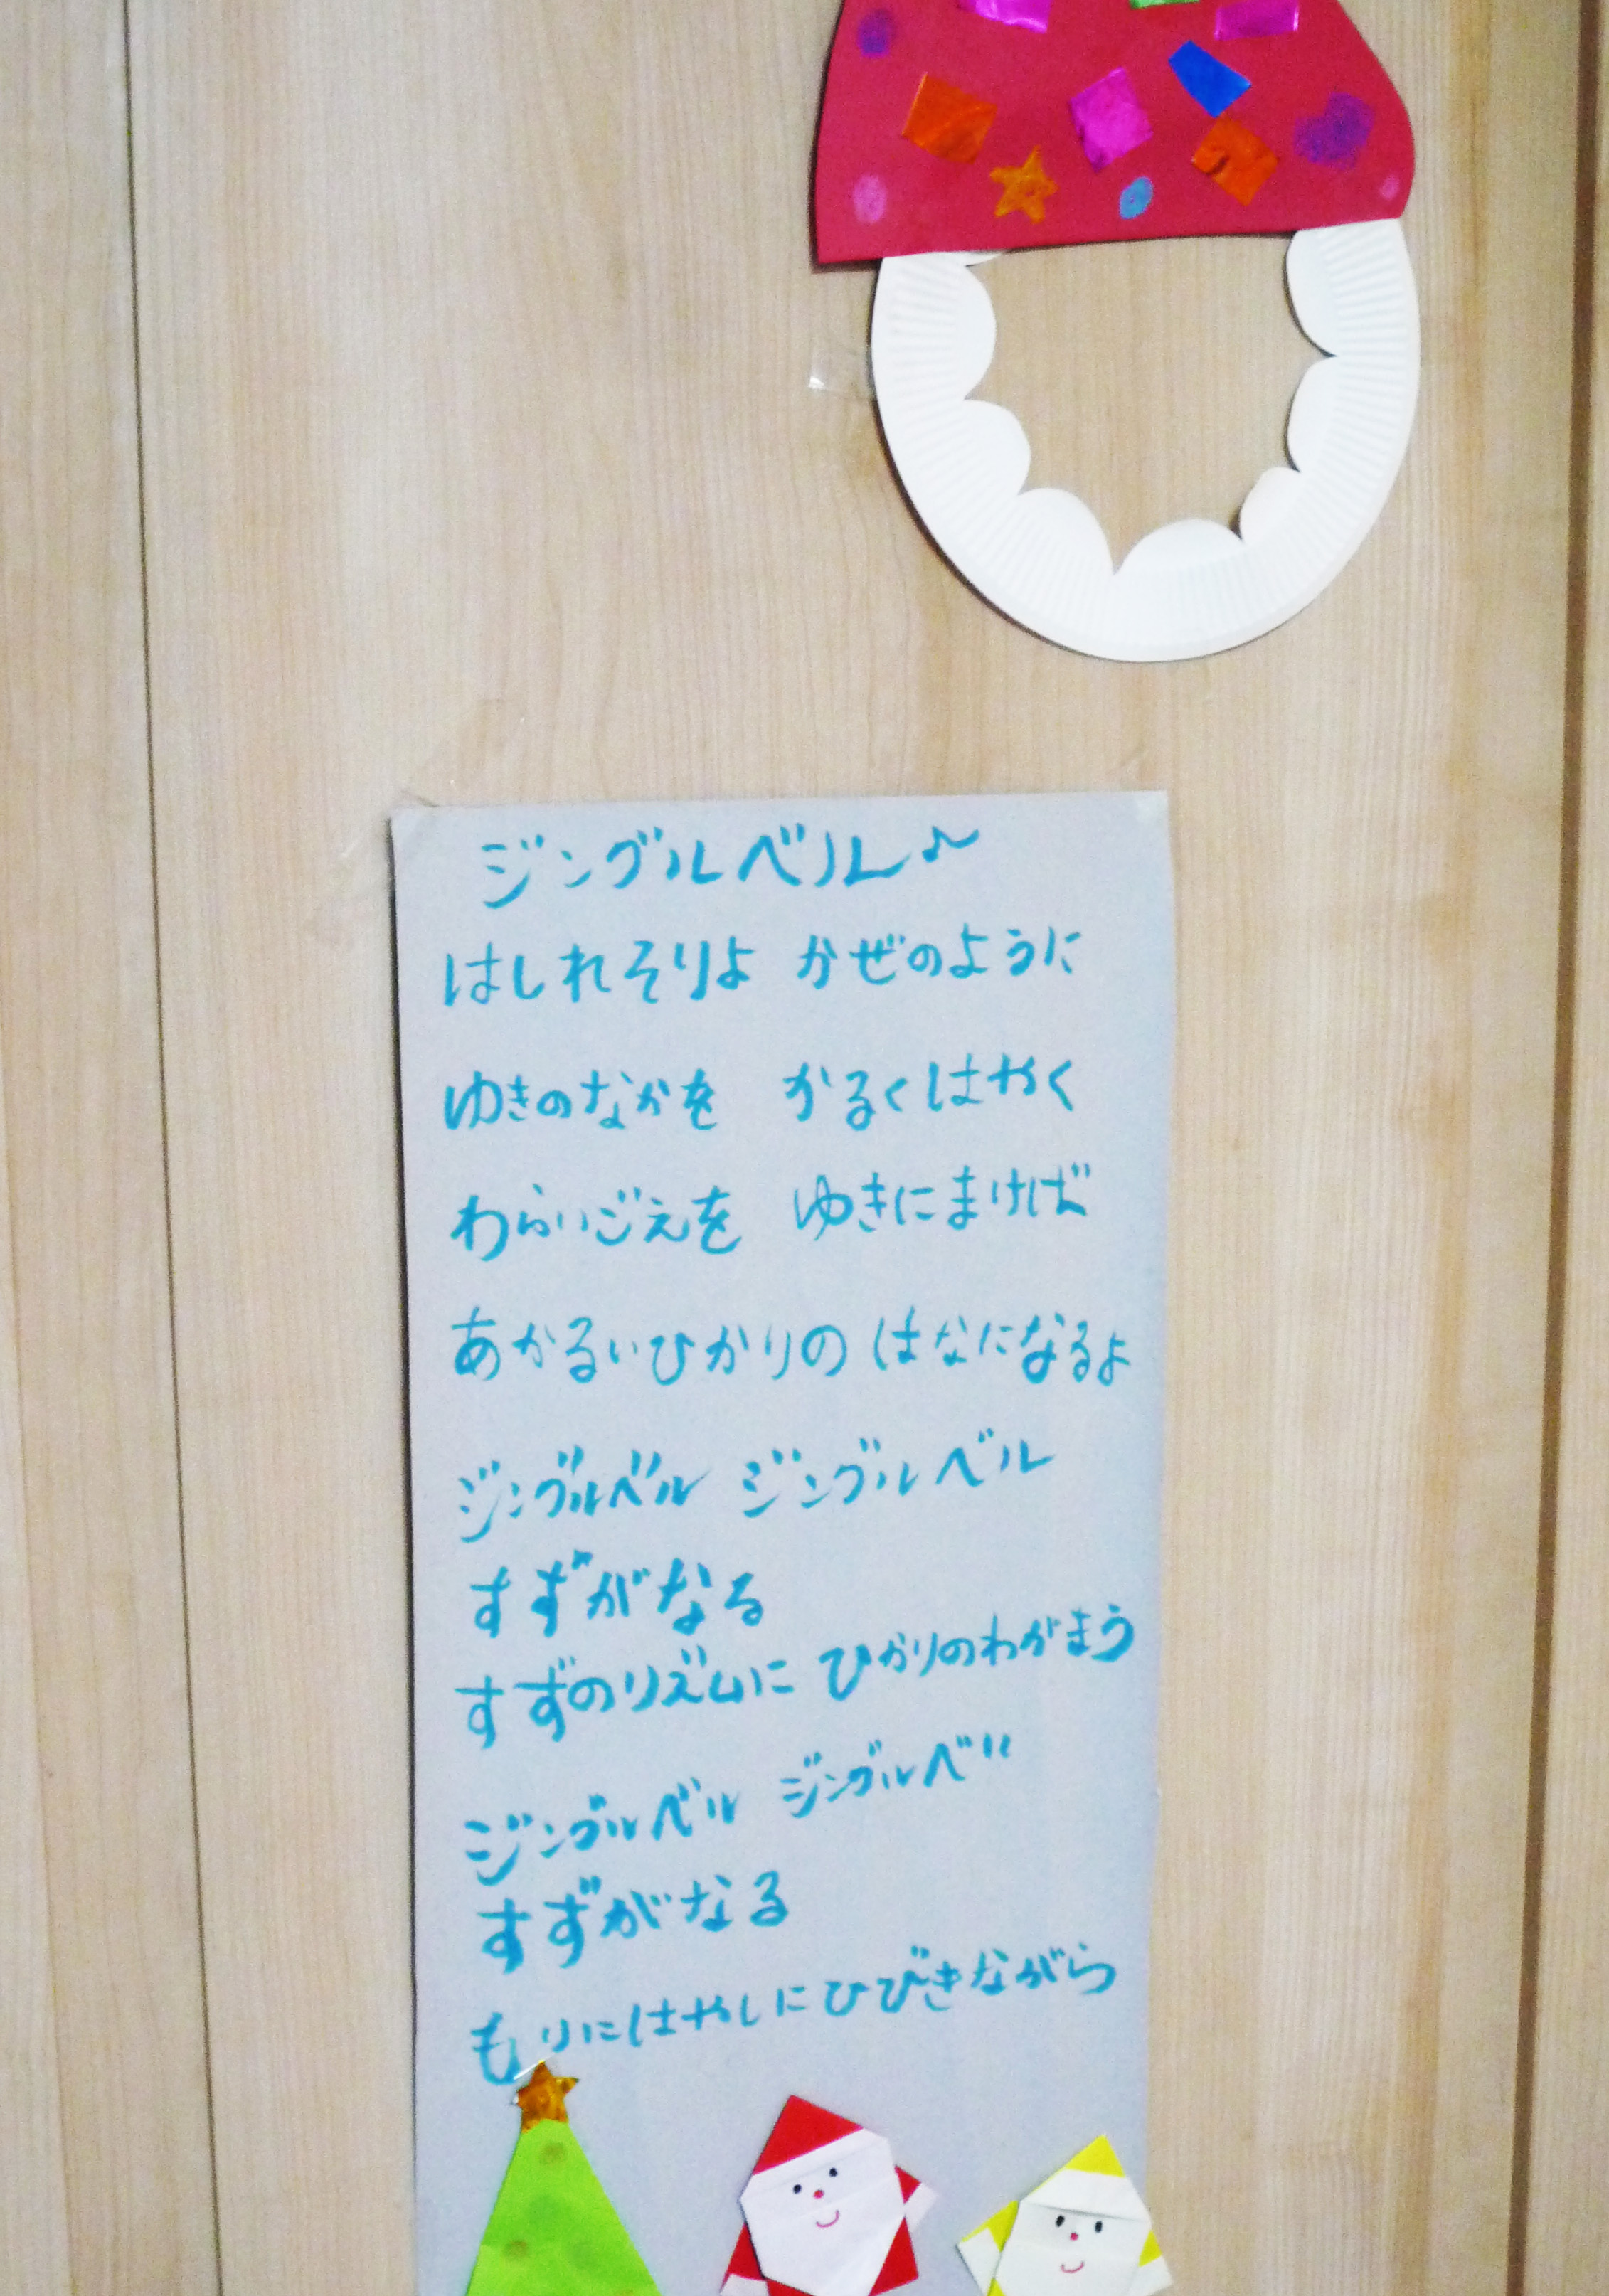 ジングルベル♪
はしれそりよ かぜのように
ゆきのなかを かるくはやく
わらいごえを ゆきにまけば
あかるいひかりの はなになるよ
ジングルベル ジングルベル
すずがなる
すずのリズムに ひかりのわがまう
ジングルベル ジングルベ〃
すずがなる
もりにはやしにひびきながら